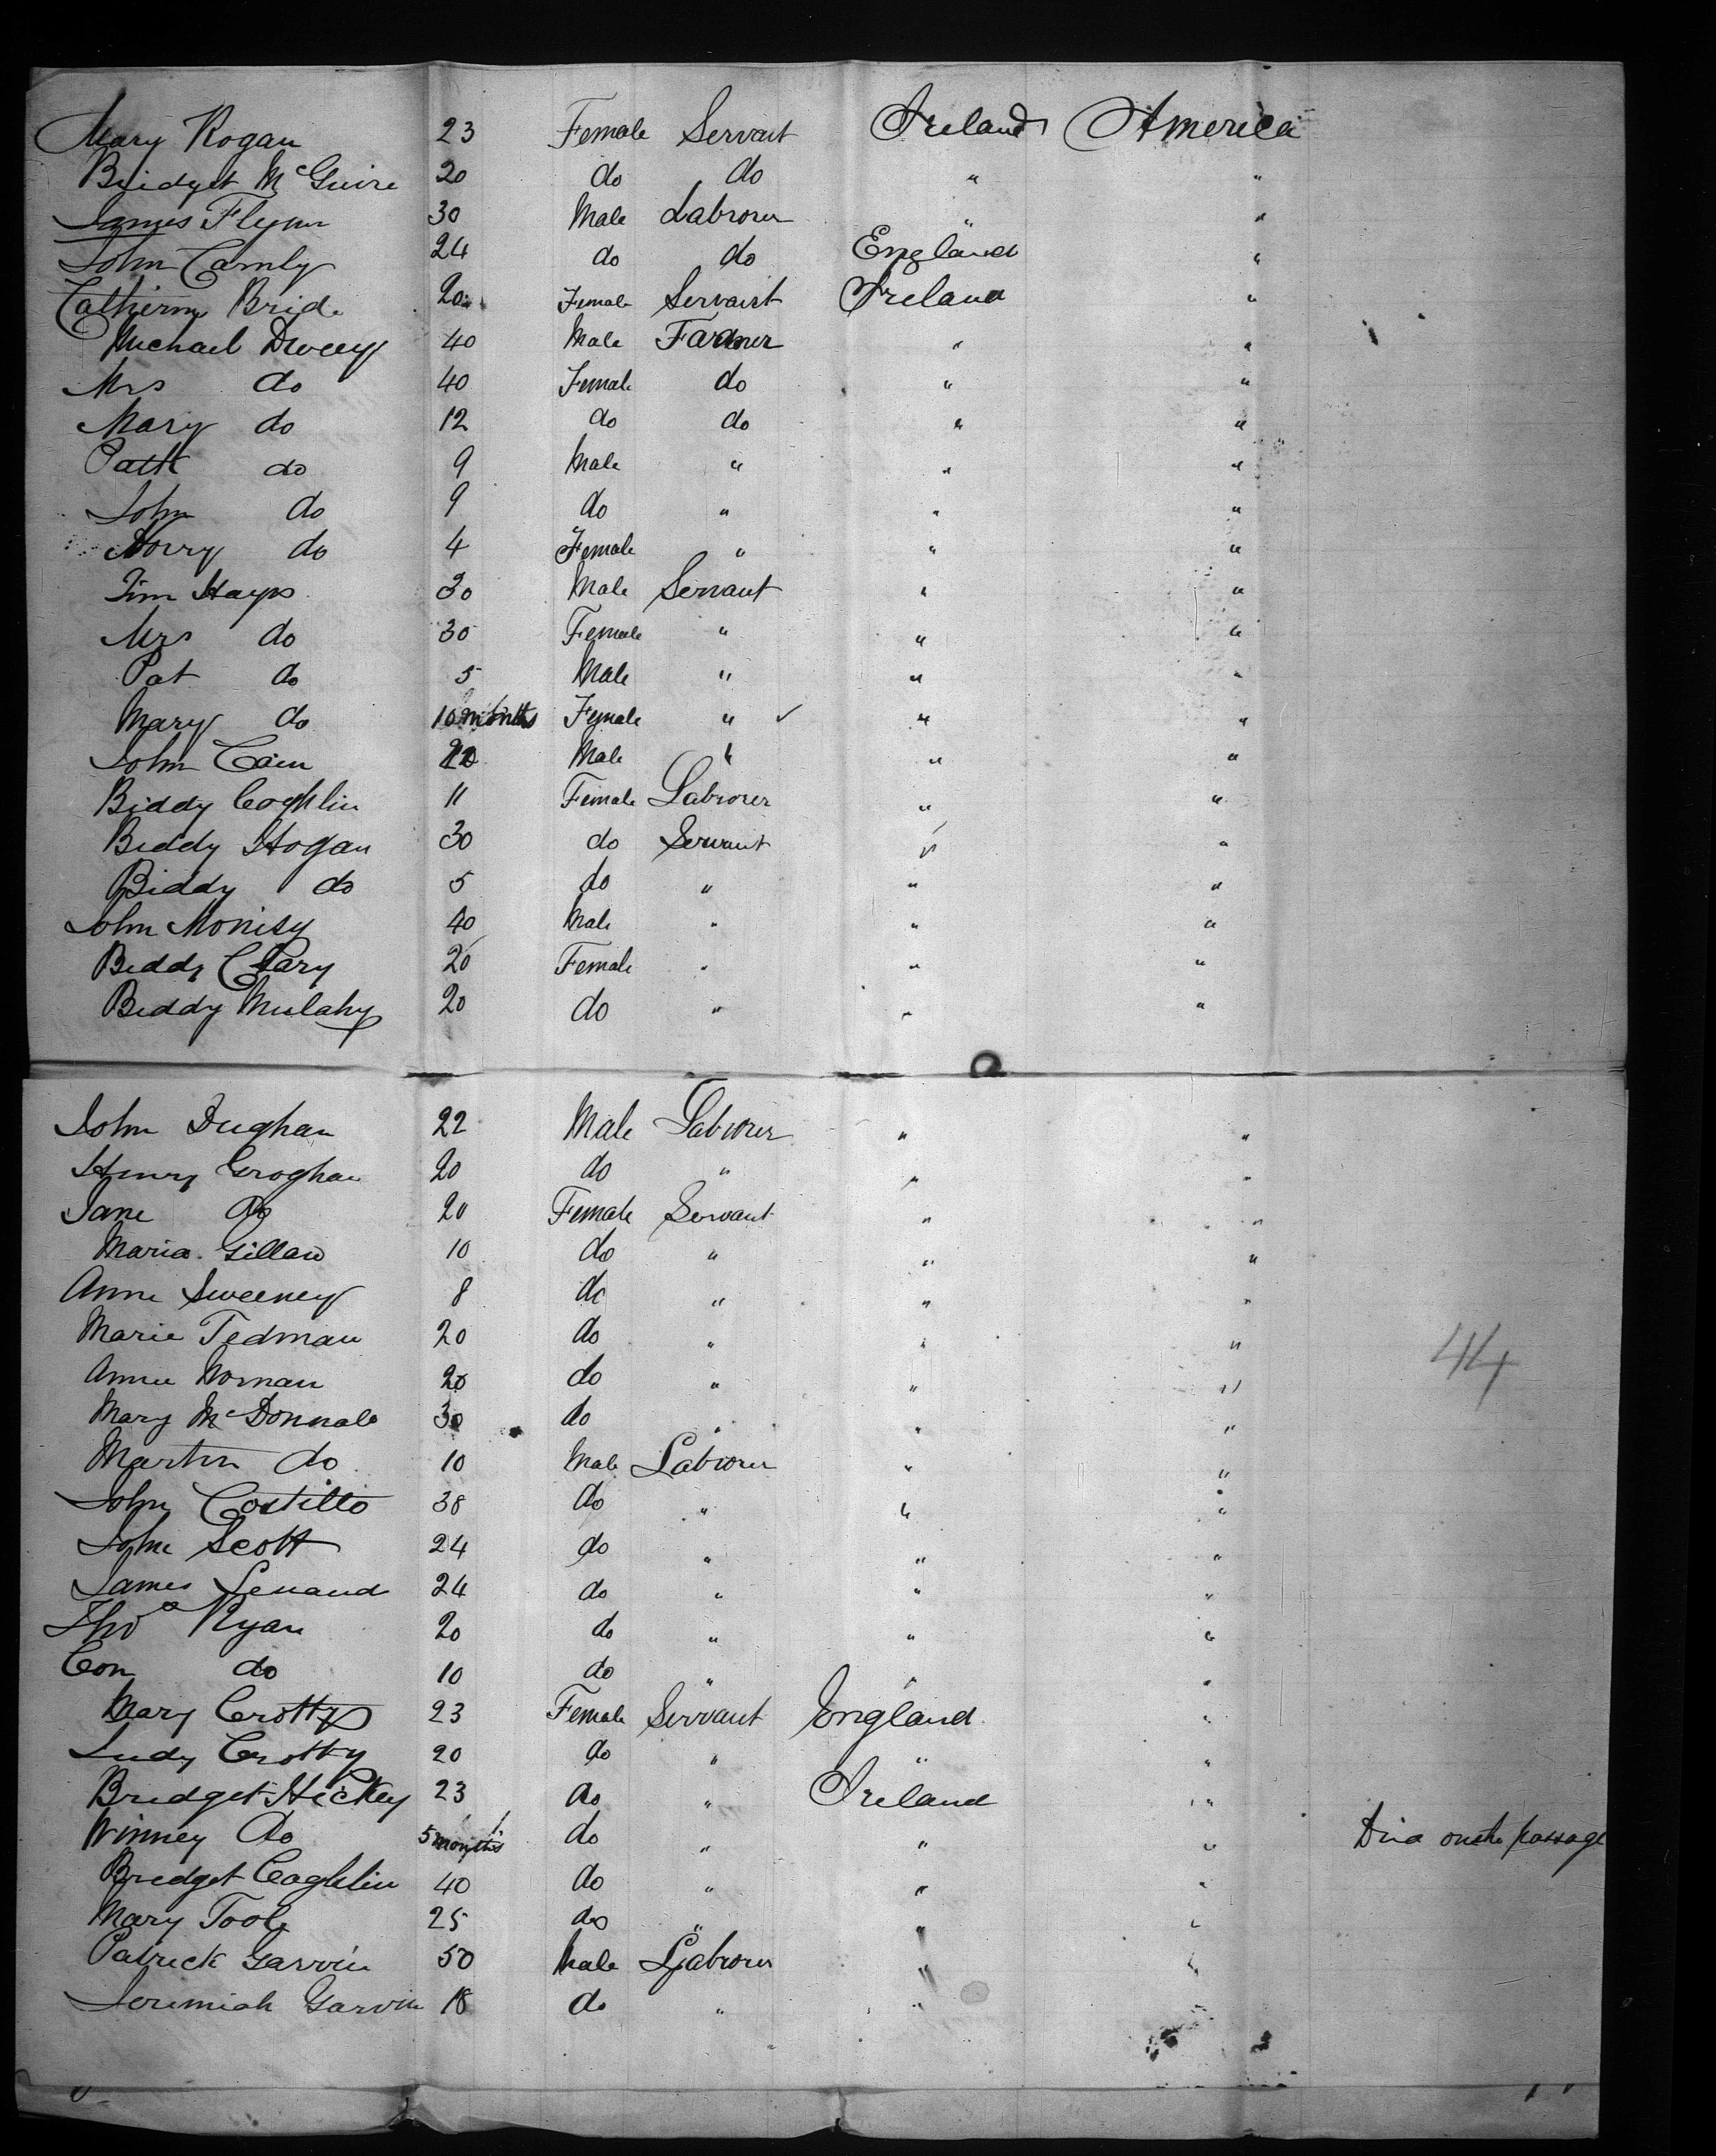 Mary Rogan 23 Female Servant Ireland America
Bridget McGuire 20 do do " "
James Flynn 30 Male Labrorer " "
John Carnly 24 do do England "
Catherine Bride 20 Female Servant Ireland "
Michael Dwery 40 Male Farmer " "
Mrs do 40 Female do " "
Mary do 12 do do " "
Patk do 9 Male " " "
John do 9 do " " "
Norry do 4 Female " " "
Tim Hays 30 Male Servant " "
Mrs do 30 Female " " "
Pat do 5 Male " " "
Mary do 10 months Female " " "
John Cain Male " " "
Biddy Coghlin 11 Female Labrorer " "
Biddy Hogan 30 do Servant " "
Biddy do 5 do " " "
John Monisy 40 Male " " "
Biddy Clary 20 Female " " "
Biddy Mulahy 20 do " " "
John Dughan 22 Male Labrorer " "
Henry Groghan 20 do " " "
Jane do 20 Female Servant " "
Maria Gillan 10 do " " "
Anne Sweeney 8 do " " "
Marie Tedman 20 do " " "
44
Annie Nornan 20 do " " "
Mary McDonnald 30 do " " "
Martin do 10 Male Labrorer " "
John Costillo 38 do " " "
John Scott 24 do " " "
James Lenand 24 do " " "
Thos Ryan 20 do " " "
Con do 10 do " " "
Mary Crotty 23 Female Servant England "
Judy Crotty 20 do " " "
Bridget Hickey 23 do " Ireland "
Winney do 5 months do " " " Died on the passage
Bredget Coghlin 40 do " " "
Mary Toole 25 do " " "
Patrick Garvin 50 Male Labrorer " "
Jeremiah Garvin 18 do " "